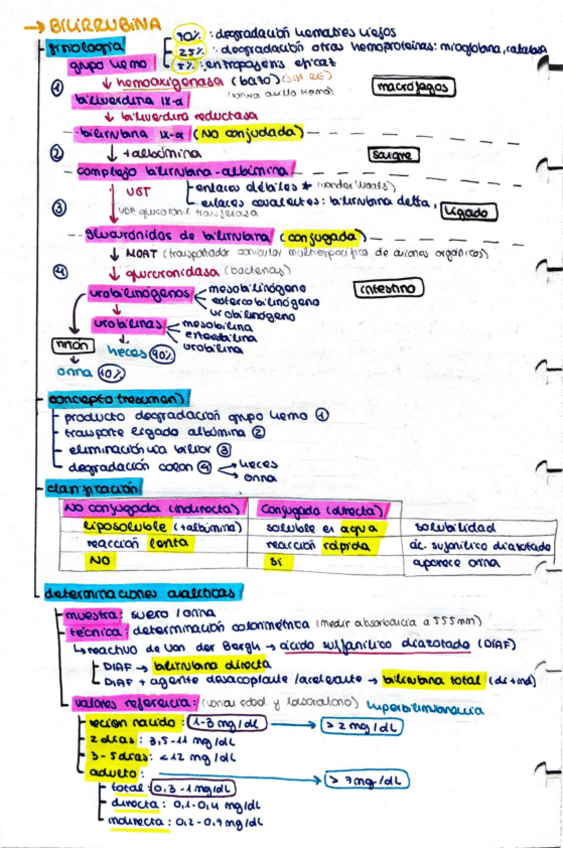 → BILIRRUBINA
fisiología
70% : degradación hematíes viejos
25% : degradación otras hemoproteínas: mioglobina, catalasa
5% : entropoyesis eficaz
grupo hemo
① ↓ hemooxigenasa (bazo) (sist RE)
macrófagos
biliverdina IX-α
↓ biliverdina reductasa
bilirrubina IX-α (No conjudada)
② ↓ +albúmina
sangre
complejo bilirrubina-albúmina
③ UGT
enlaces débiles * (vander Waals)
enlaces covalentes: bilirrubina delta,
UDP glucoronil transferasa
hígado
glucurónidos de bilirrubina (conjugada)
④ ↓ MOAT (transportador canicular multiespecífica de aniones orgánicos)
↓ glucuronidasa (bacterias)
intestino
urobilinógenos
mesobilinógeno
estercobilinógeno
urobilinógeno
urobilinas
mesobilina
urobilina
riñón
heces 90%
orina 10%
concepto (resumen)
producto degradación grupo hemo ①
transporte ligado albúmina ②
eliminación vía biliar ③
degradación colon ④ → heces
→ orina
clasificación
No conjugada (indirecta) Conjugada (directa)
liposoluble (+albúmina) soluble en agua solubilidad
reacción lenta reacción rápida ác. sulfanílico diazotado
NO SI aparece orina
determinaciones analíticas
muestra: suero / orina
técnica: determinación colorimétrica (medir absorbancia a 555nm)
↳ reactivo de Van der Bergh → ácido sulfanílico diazotado (DIAF)
DIAF → bilirrubina directa
DIAF + agente desacoplante /acelerante → bilirrubina total (dir+ind)
valores referencia: (varían edad y laboratorio) hiperbilirrubinemia
recién nacido: 1-3 mg/dL → > 2 mg/dL
2 días: 3,5-11 mg/dL
3-5 días: <12 mg/dL
adulto: → > 7 mg/dL
total: 0,3-1 mg/dL
directa: 0,1-0,4 mg/dL
indirecta: 0,2-0,7 mg/dL